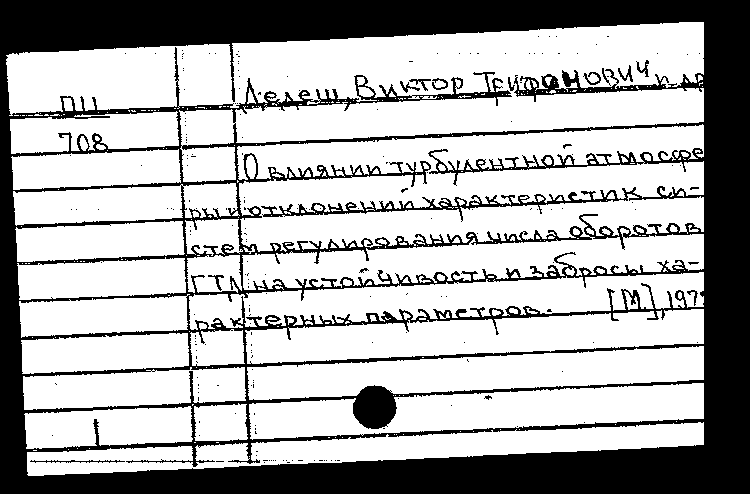 ПЦ
708
Дедеш, Виктор Трифонович и др
О влиянии турбулентной атмосфе
ры и отклонений характеристик си-
стем регулирования числа оборотов
ГТД на устойчивость и забросы ха-
рактерных параметров. [М], 197
1